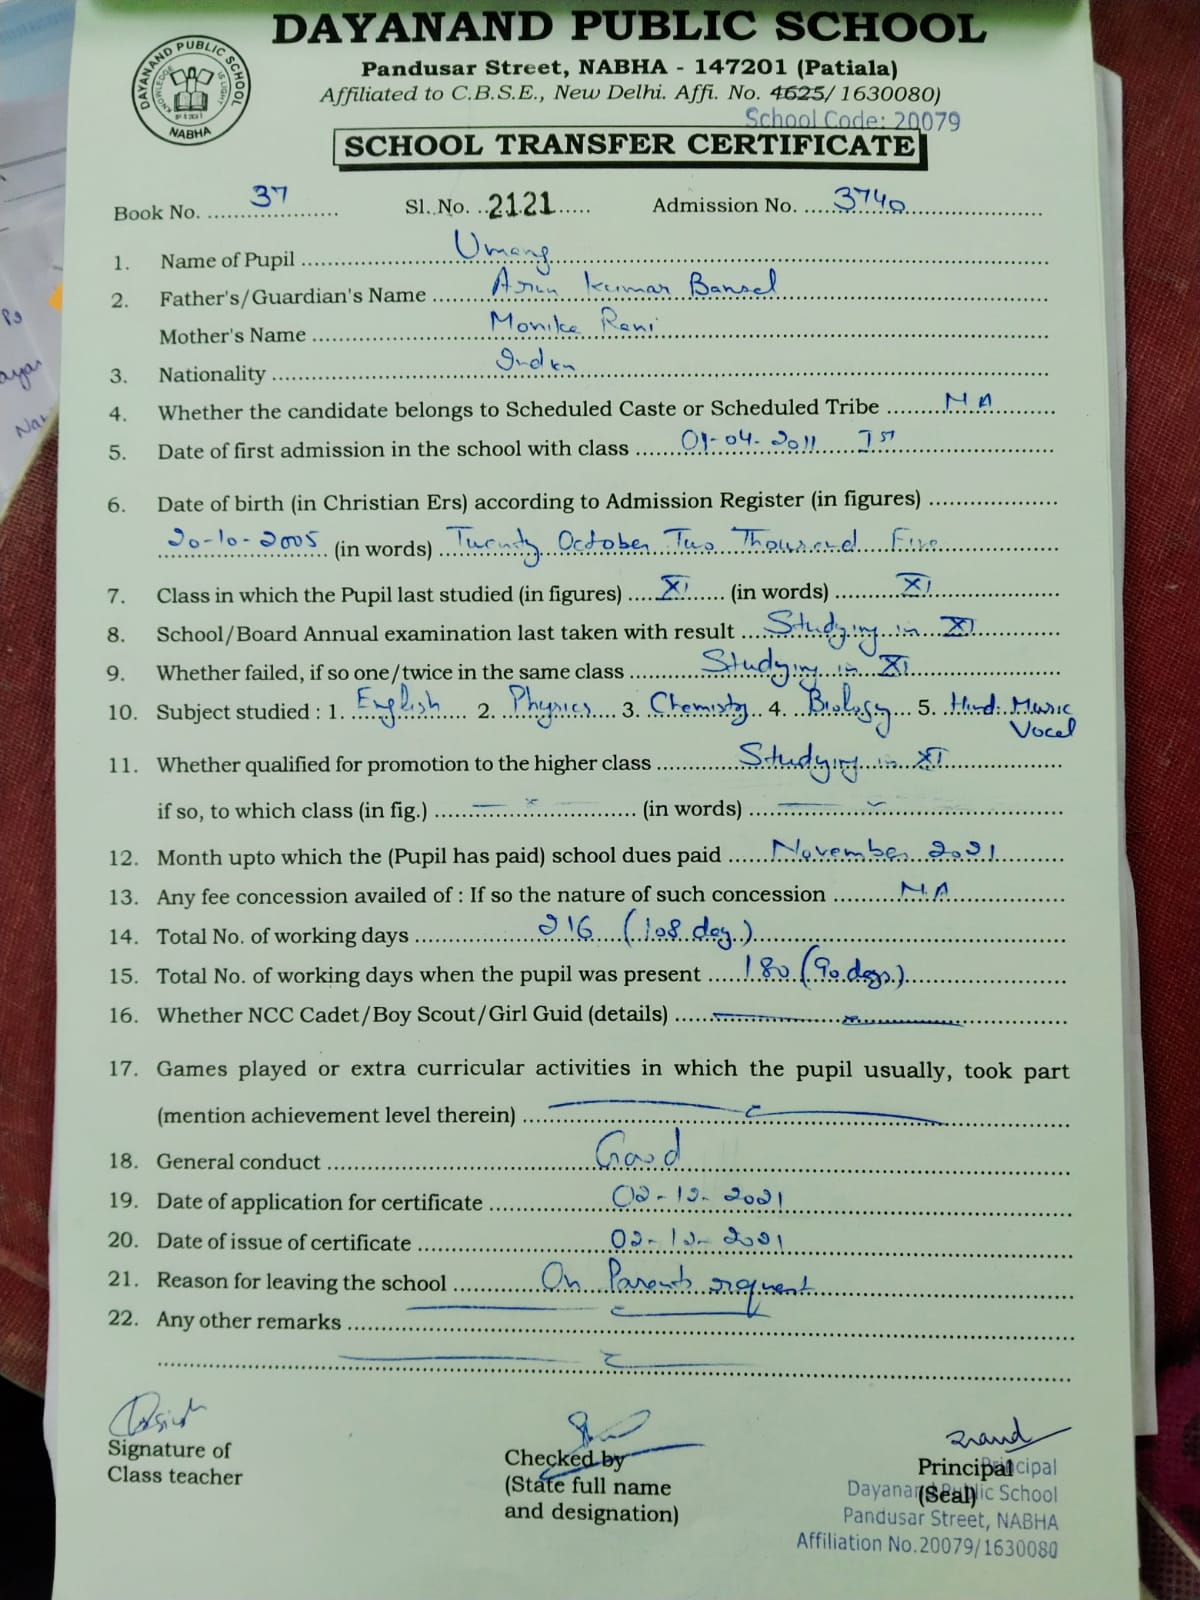 DAYANAND PUBLIC SCHOOL
Pandusar Street, NABHA - 147201 (Patiala)
Affiliated to C.B.S.E., New Delhi. Affi. No. 4625/ 1630080)
School Code: 20079
DAYANAND PUBLIC SCHOOL
NABHA
SCHOOL TRANSFER CERTIFICATE
Book No. 37 Sl. No. 2121 Admission No. 3740
1. Name of Pupil Umang
2. Father's/Guardian's Name Arun Kumar Bansal
Mother's Name Monika Rani
3. Nationality
4. Whether the candidate belongs to Scheduled Caste or Scheduled Tribe NA
5. Date of first admission in the school with class 01-04-2011 Ist
6. Date of birth (in Christian Ers) according to Admission Register (in figures)
20-10-2005 (in words) Twenty October Two Thousand Five
7. Class in which the Pupil last studied (in figures) XI (in words) XI
8. School/Board Annual examination last taken with result Studying in XI
9. Whether failed, if so one/twice in the same class Studying in XI
10. Subject studied : 1. English 2. Physics 3. Chemistry 4. Biology 5. Hind. Music
Vocal
11. Whether qualified for promotion to the higher class Studying in XI
if so, to which class (in fig.) (in words)
12. Month upto which the (Pupil has paid) school dues paid November 2021
13. Any fee concession availed of : If so the nature of such concession N.A
14. Total No. of working days 216 (108 day.)
15. Total No. of working days when the pupil was present 180 (90 days.)
16. Whether NCC Cadet/Boy Scout/Girl Guid (details)
17. Games played or extra curricular activities in which the pupil usually, took part
(mention achievement level therein)
18. General conduct Good
19. Date of application for certificate 02-12-2021
20. Date of issue of certificate 02-12-2021
21. Reason for leaving the school On Parents request
22. Any other remarks
Signature of
Class teacher
Checked by
(State full name
and designation)
Principal
(Seal)
Principal
Dayanand Public School
Pandusar Street, NABHA
Affiliation No.20079/1630080